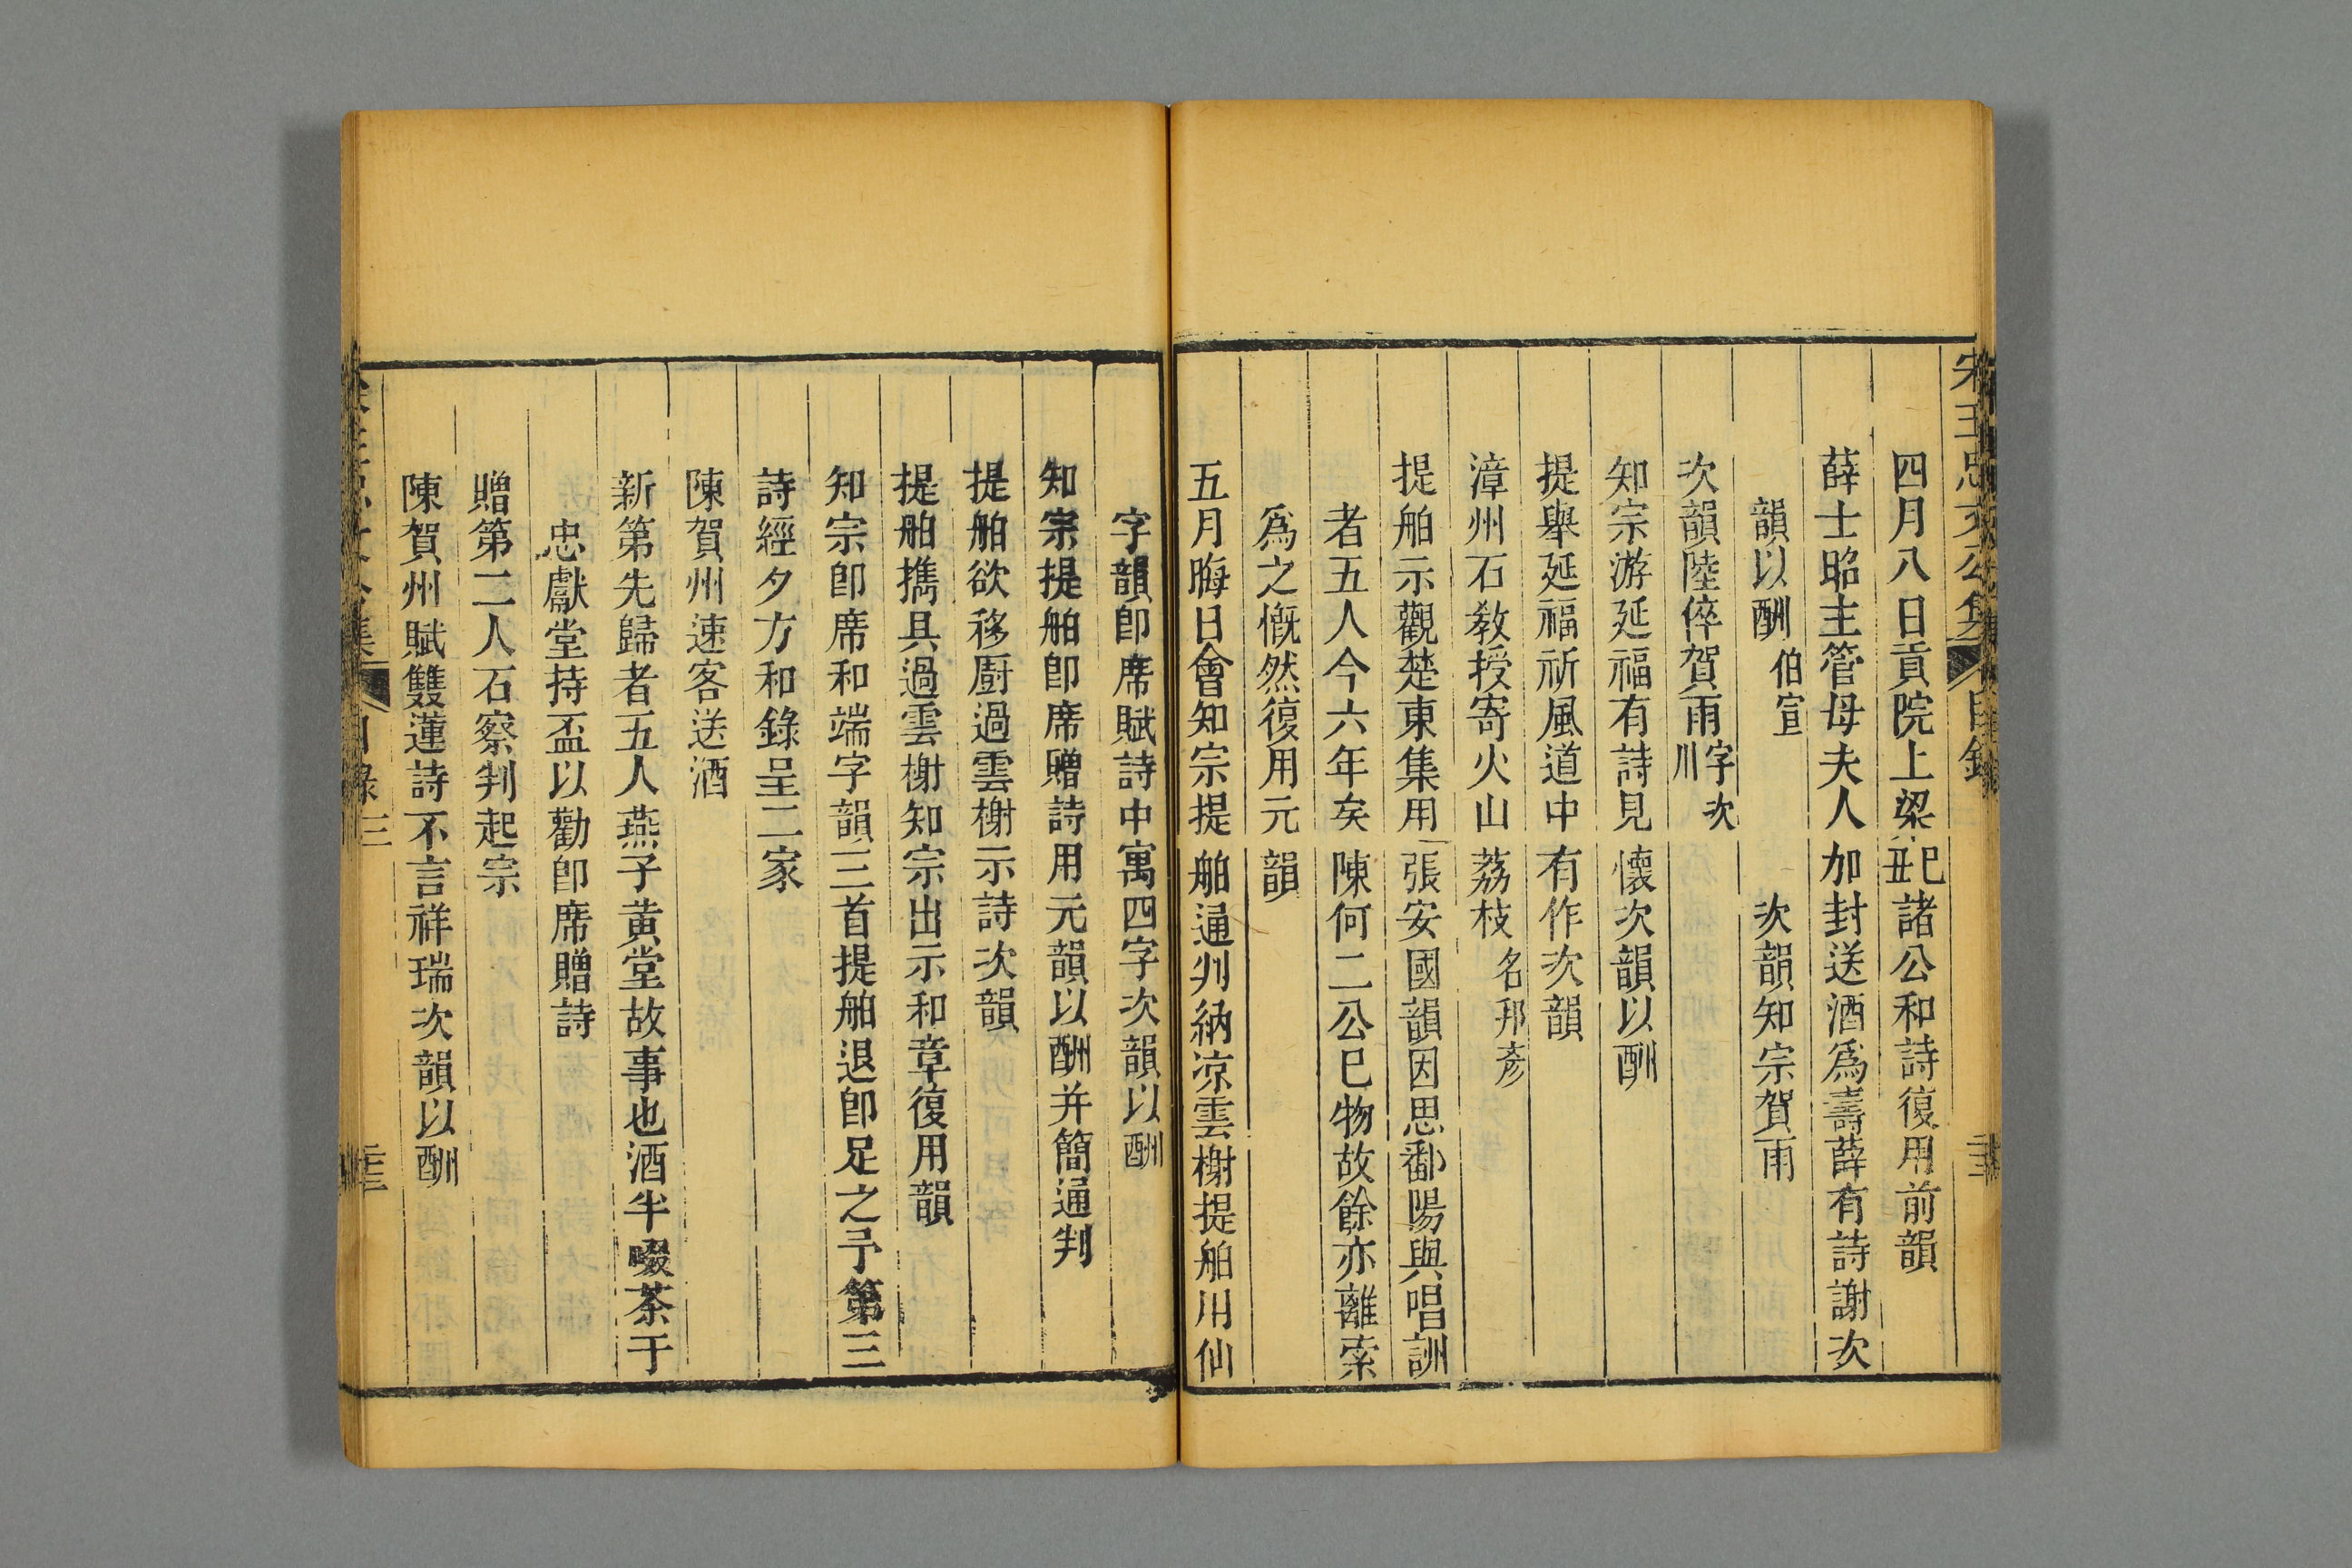 宋王忠文公集 目錄
四月八日貢院上梁 諸公和詩復用前韻
薛士昭主管母夫人加封送酒爲壽薛有詩謝次
韻以酬 伯宣 次韻知宗賀雨
次韻陸倅賀雨 次川字
知宗游延福有詩見懷次韻以酬
提舉延福祈風道中有作次韻
漳州石教授寄火山荔枝 名邦彥
提舶示觀楚東集用張安國韻因思鄱陽與唱詶
者五人今六年矣陳何二公巳物故餘亦離索
爲之慨然復用元韻
五月晦日會知宗提舶通判納凉雲榭提舶用仙
字韻卽席賦詩中寓四字次韻以酬
知宗提舶卽席贈詩用元韻以酬并簡通判
提舶欲移廚過雲榭示詩次韻
提舶擕具過雲榭知宗出示和章復用韻
知宗卽席和端字韻三首提舶退卽足之予第三
詩經夕方和錄呈二家
陳賀州速客送酒
新第先歸者五人燕子黄堂故事也酒半啜茶于
忠獻堂持盃以勸卽席贈詩
贈第二人石察判起宗
陳賀州賦雙蓮詩不言祥瑞次韻以酬